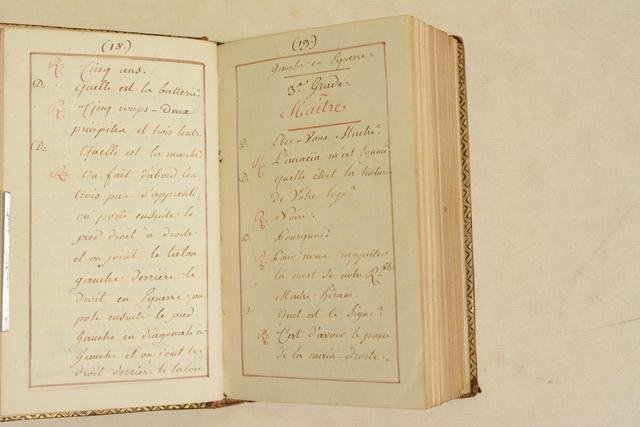 (18.)
R: Cinq ans.
D: Quelle est la batterie?
R: Cinq coups - Deux
précipités et trois lents.
D: Quelle est la marche?
R: On fait d'abord les
trois pas d'apprenti;
on porte ensuite le
pied droit à droite
et on joint le talon
gauche derrière le
droit en Equerre; on
pose ensuite le pied
Gauche en diagonale à
Gauche et on joint le
droit derrière le talon
(19.)
Gauche en Equerre.
3e. Grade.
Maitre
D. Etes-Vous Maitre?
R: L'accacia m'est Connu
D. quelle étoit la tenture
de Votre loge?
R: Noire.
D. Pourquoi?
R: Pour nous rappeller
la mort de notre R.ble
Maitre hiram.
D. Quel est le Signe?
R: C'est d'avoir le pouce
de la main droite -